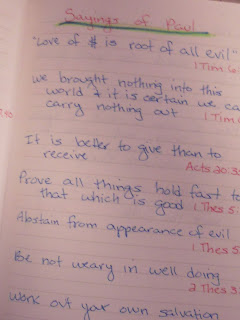 Sayings of Paul
"Love of $ is root of all evil"
1 Tim 6:
we brought nothing into this
world & it is certain we ca
carry nothing out 1 Tim
It is better to give than to
receive
Acts 20:3
Prove all things hold fast to
that which is good 1 Thes 5:
Abstain from appearance of evil
1 Thes 5
Be not weary in well doing
2 Thes 3:
Work out your own salvation